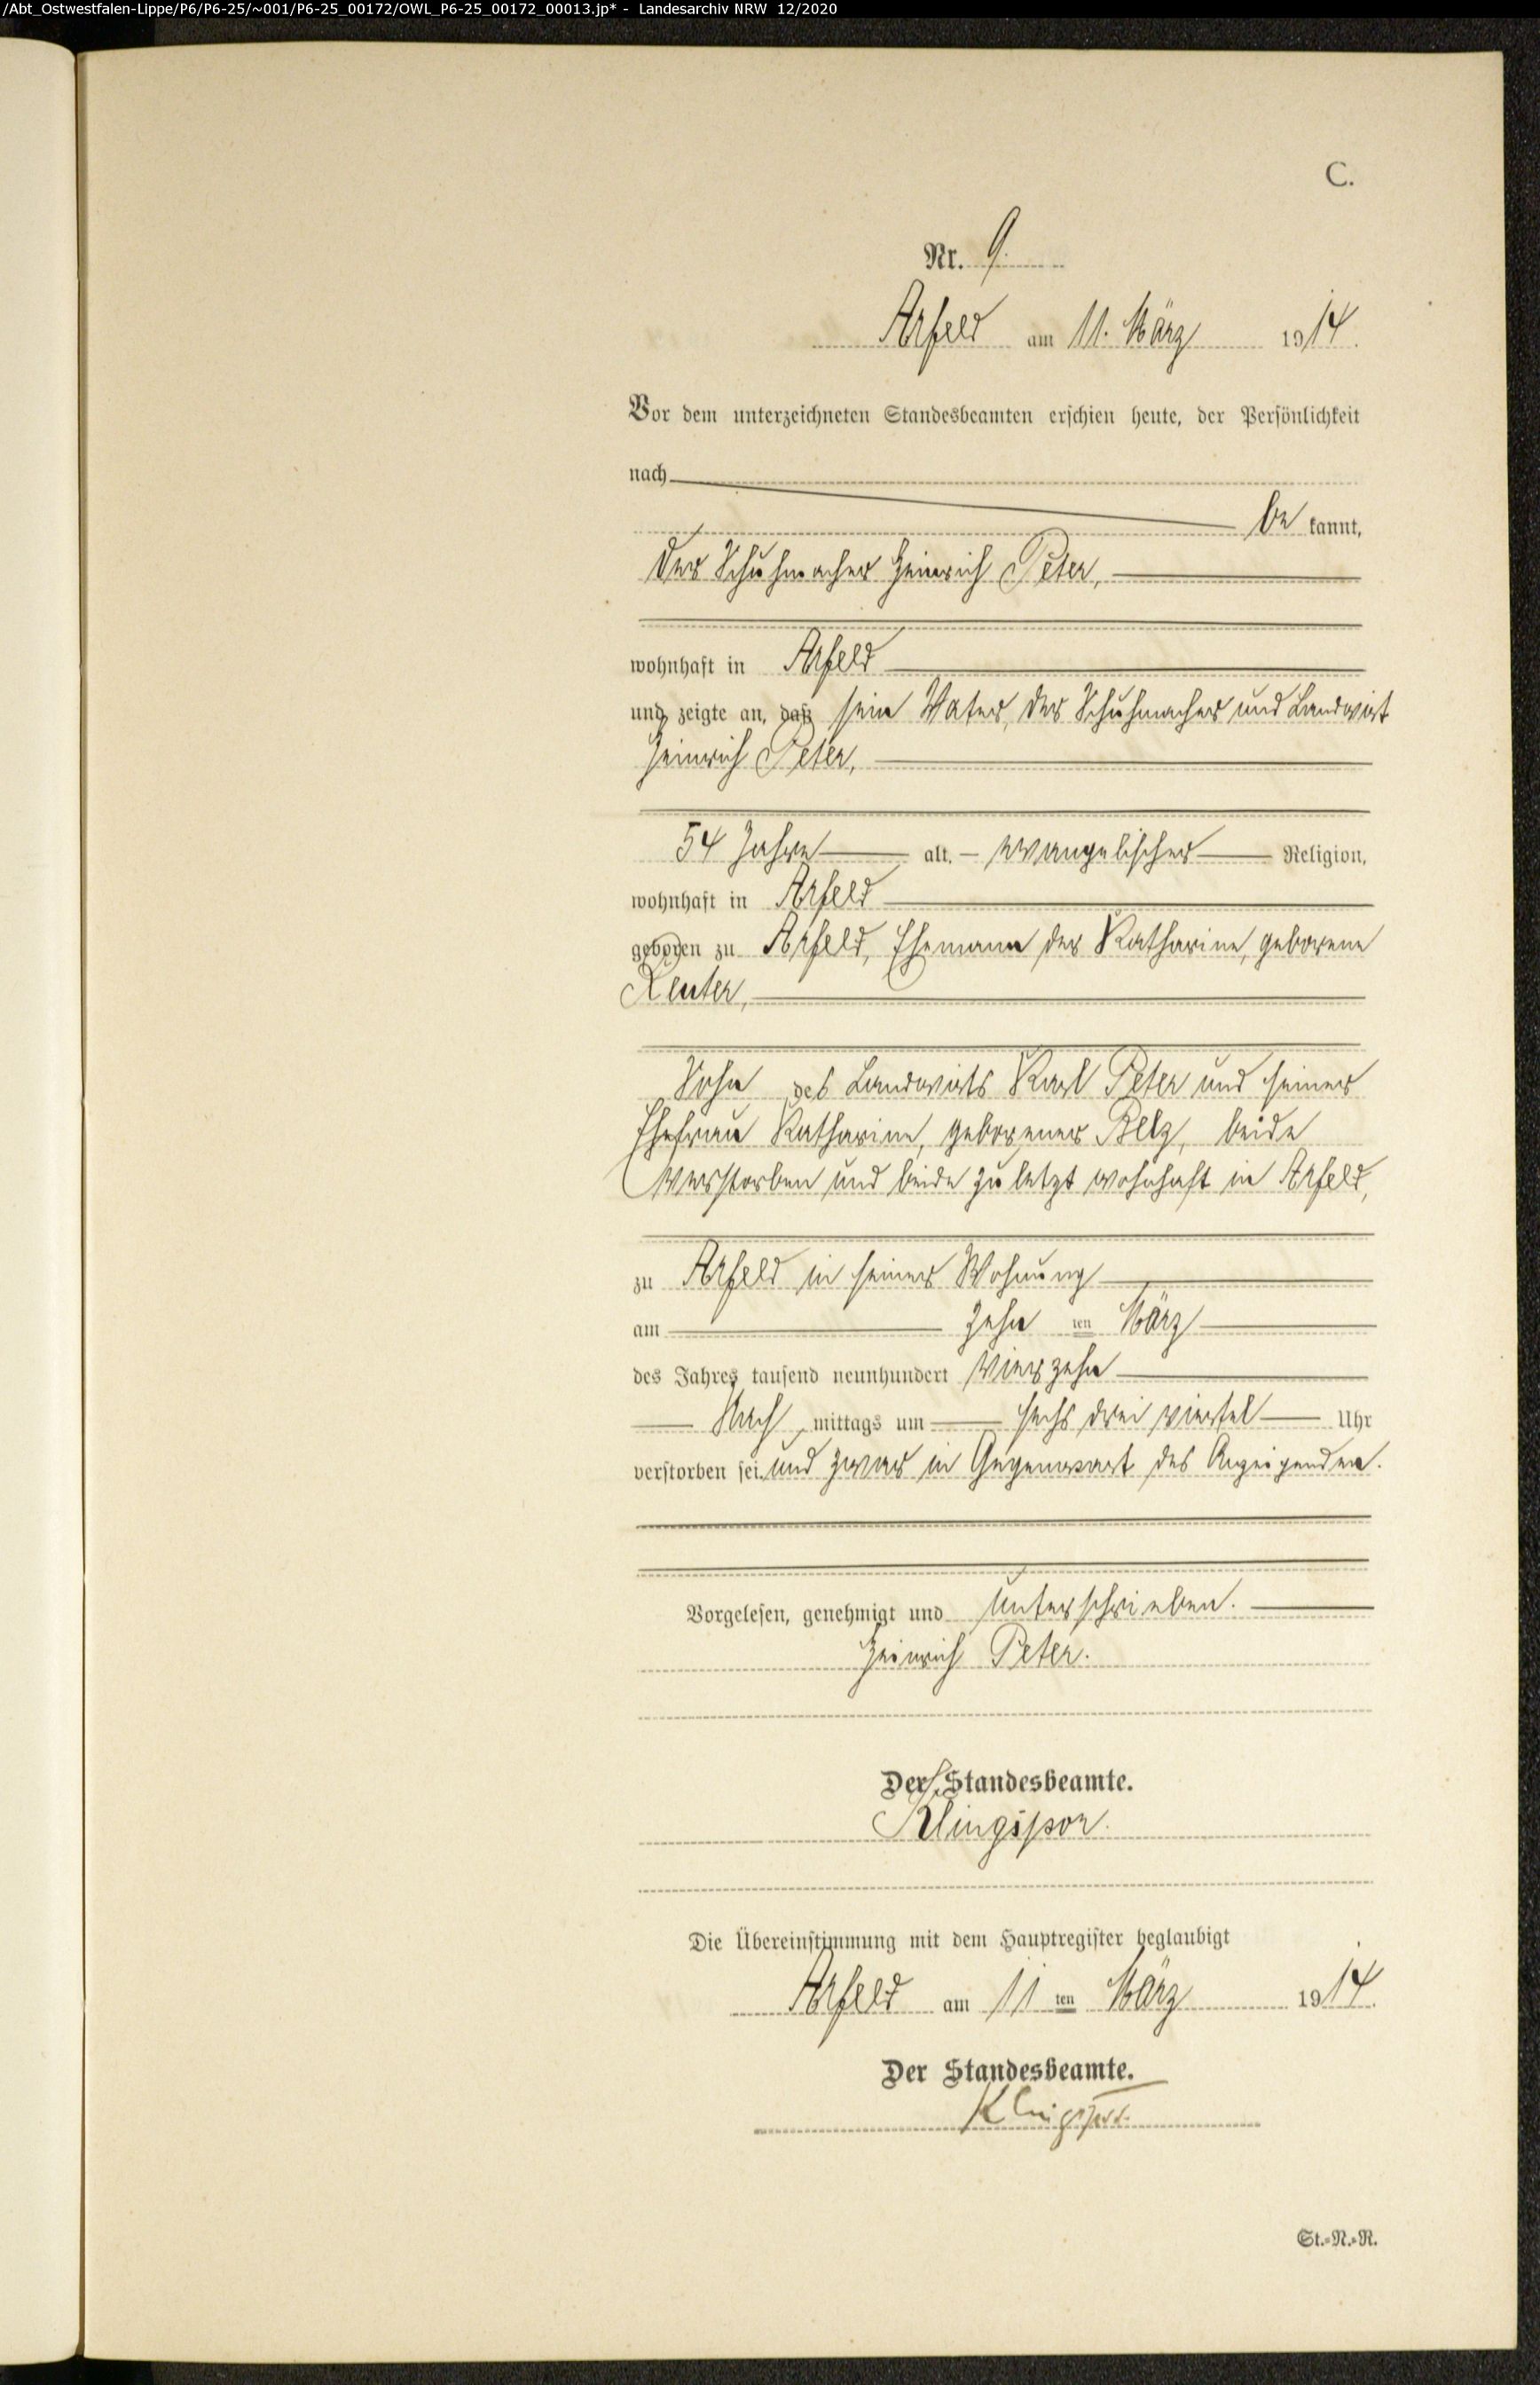 /Abt_Ostwestfalen-Lippe/P6/P6-25/~001/P6-25_00172/OWL_P6-25_00172_00013.jp* - Landesarchiv NRW 12/2020
C.
Nr. 9.
Arfeld am 11. März 1914.
Vor dem unterzeichneten Standesbeamten erschien heute, der Persönlichkeit
nach
be kannt,
der Schuhmacher Heinrich Peter,
wohnhaft in Arfeld
und zeigte an, daß sein Vater, der Schuhmacher und Landwirt
Heinrich Peter,
54 Jahre alt, evangelischer Religion,
wohnhaft in Arfeld
geboren zu Arfeld, Ehemann der Katharine, geborene
Reuter,
Sohn des Landwirts Karl Peter und seiner
Ehefrau Katharine, geborener Belz, beide
verstorben und beide zuletzt wohnhaft in Arfeld,
zu Arfeld in seiner Wohnung
am zehn ten März
des Jahres tausend neunhundert vierzehn
Nach mittags um sechs drei viertel Uhr
verstorben sei. und zwar in Gegenwart des Anzeigenden.
Vorgelesen, genehmigt und unterschrieben.
Heinrich Peter.
Der Standesbeamte.
Klingspor.
Die Übereinstimmung mit dem Hauptregister beglaubigt
Arfeld am 11 ten März 1914.
Der Standesbeamte.
Klingspor.
St.-N.-R.